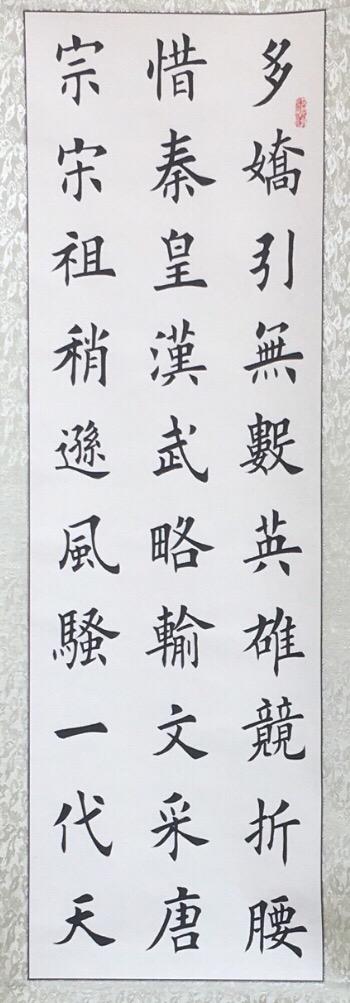 多嬌引無數英雄競折腰
惜秦皇漢武略輸文采唐
宗宋祖稍遜風騷一代天